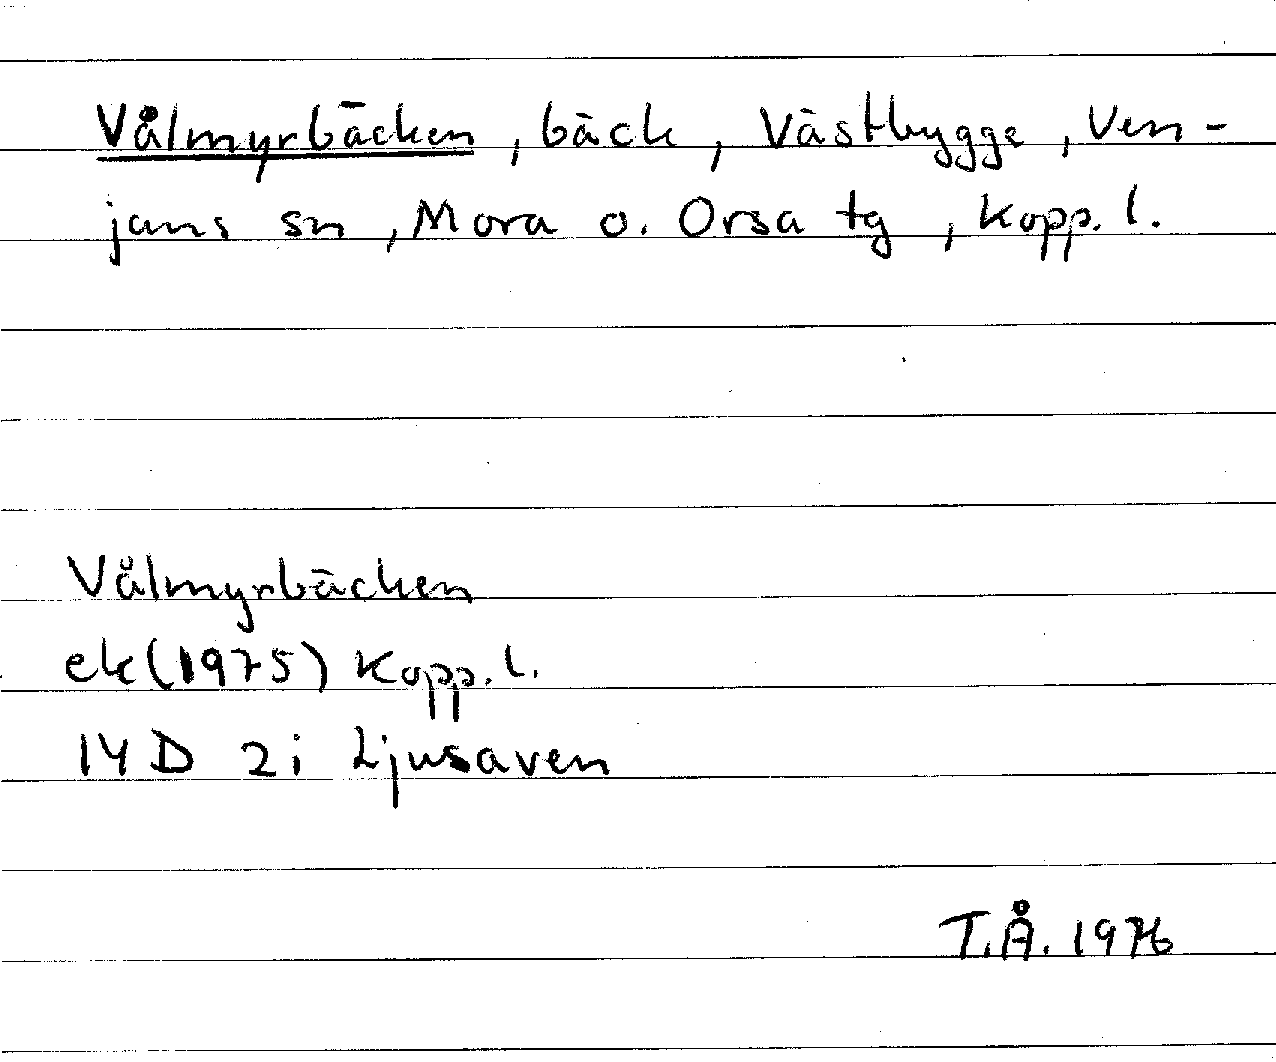 Vålmyrbäcken, bäck, Västbygge, Ven-
jans sn, Mora o. Orsa tg, Kopp. l.
Vålmyrbäcken
ek (1975) Kopp. l.
14 D 2i Ljusaven
T.Å. 1976